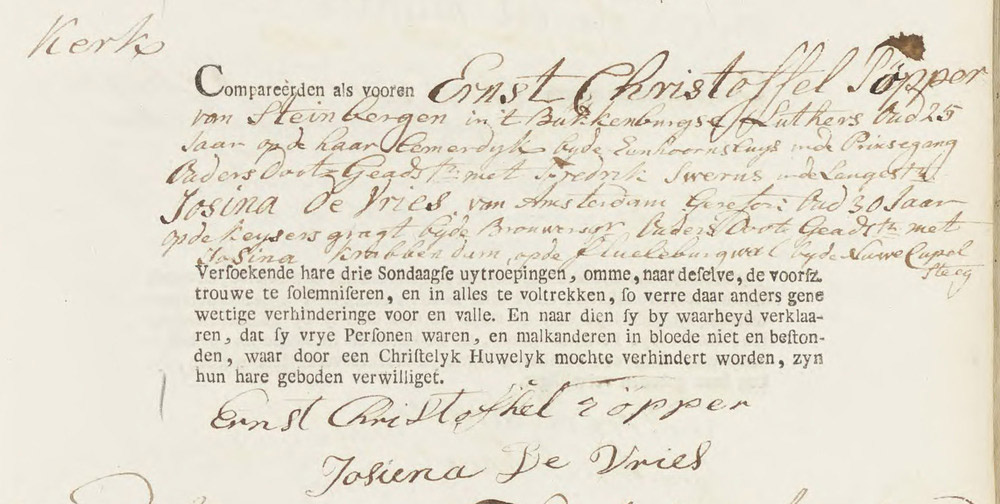 Kerk
Compareerden als vooren Ernst Christoffel Töpper
van Steinbergen in't Bukkenburgse Luthers Oud 25
Jaar op de haarlemerdyk by de Eenhoornsluys in de Prinsegang
Ouders Doot Geadstr: met Fredrik Swerus in de Langestr:
Josina De Vries van Amsterdam Geref: Oud 30 Jaar
op de Keysersgragt by de Brouwersgr Ouders Doot Geadstr: met
Josina Krabbendam op de flueleburgwal by de Nauwe Capel
steeg
Versoekende hare drie Sondaagse uytroepingen, omme, naar deselve, de voorsz.
trouwe te solemniseren, en in alles te voltrekken, so verre daar anders gene
wettige verhinderinge voor en valle. En naar dien sy by waarheyd verklaa-
ren, dat sy vrye Personen waren, en malkanderen in bloede niet en beston-
den, waar door een Christelyk Huwelyk mochte verhindert worden, zyn
hun hare geboden verwilliget.
Ernst Christoffel Töpper
Josiena De Vries